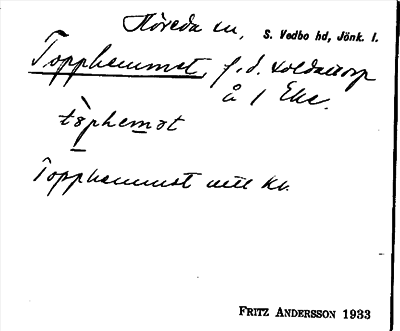 Höreda sn, S. Vedbo hd, Jönk. l.
Topphemmet, f.d. soldattorp
å 1 Eke.
Topphemmet
FRITZ ANDERSSON 1933